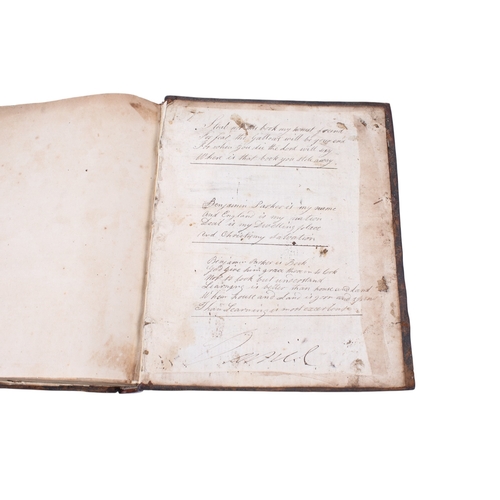 Steal not this book my honest friend
For fear the gallows will be
for when you die the Lord will say
Where is that book you stole away
Benjamin Parker is my name
and England is my nation
Deal is my Dwelling place
and Christ my salvation
Benjamin Parker is Book
God give him grace there in to look
Not to look but understand
Learning is better than house and Land
When house and Land is gon and spent
Then Learning is most excelent